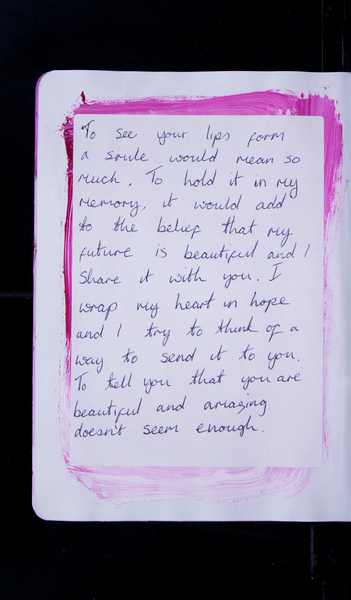 To see your lips form
a smile would mean so
much. To hold it in my
memory, it would add
to the belief that my
future is beautiful and I
share it with you. I
wrap my heart in hope
and I try to think of a
way to send it to you.
To tell you that you are
beautiful and amazing
doesn't seem enough.